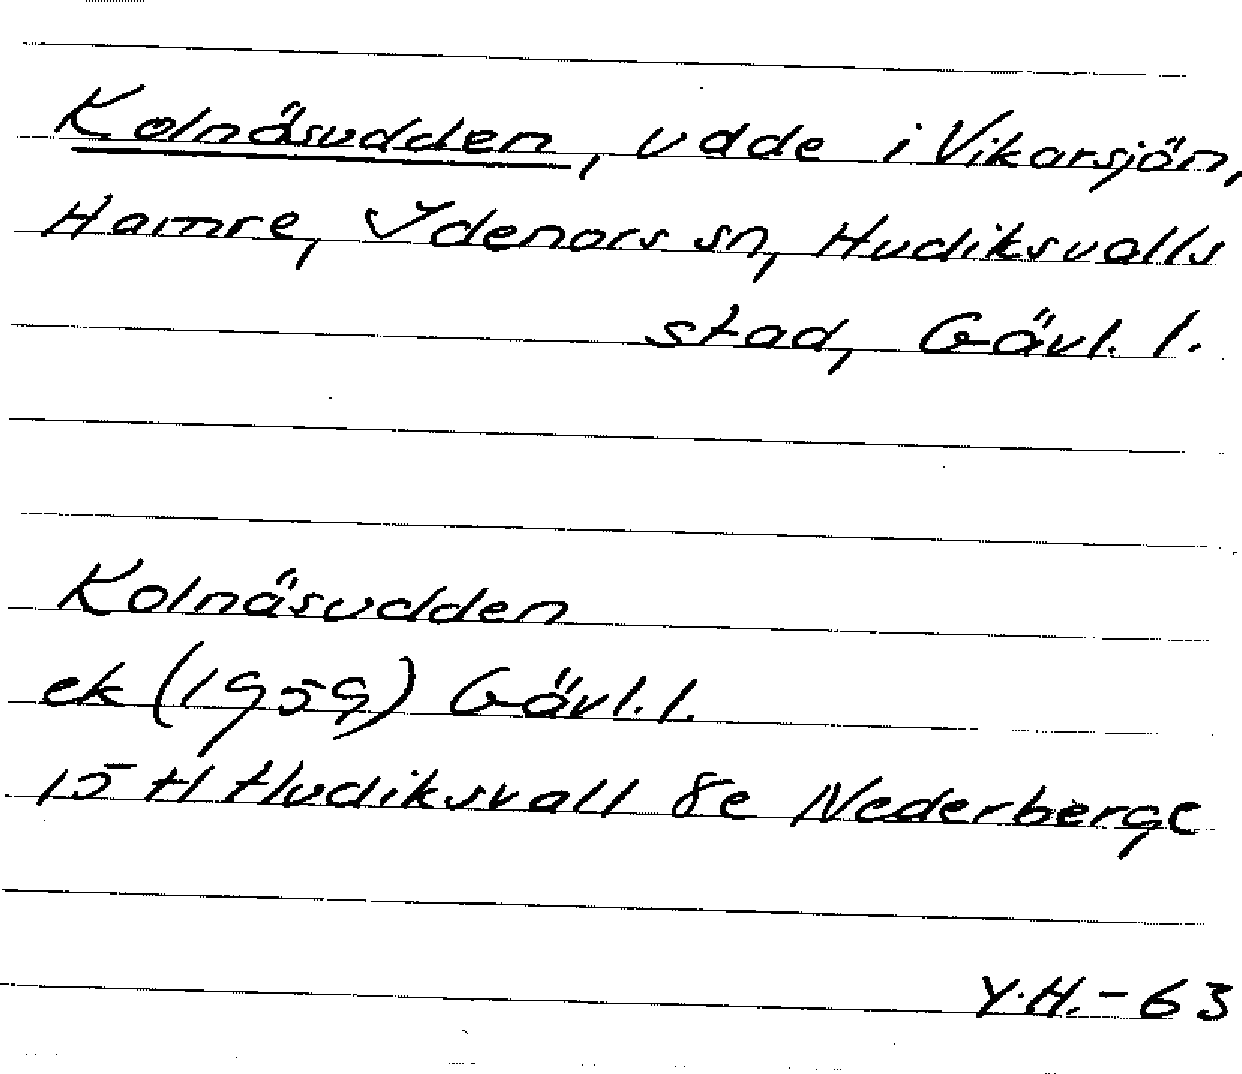 Kolnäsudden, udde i Vikarsjön,
Hamre, Idenors sn, Hudiksvalls
stad, Gävl. l.
Kolnäsudden
ek (1959) Gävl. l.
15 H Hudiksvall 8e Nederberge
Y.H.-63